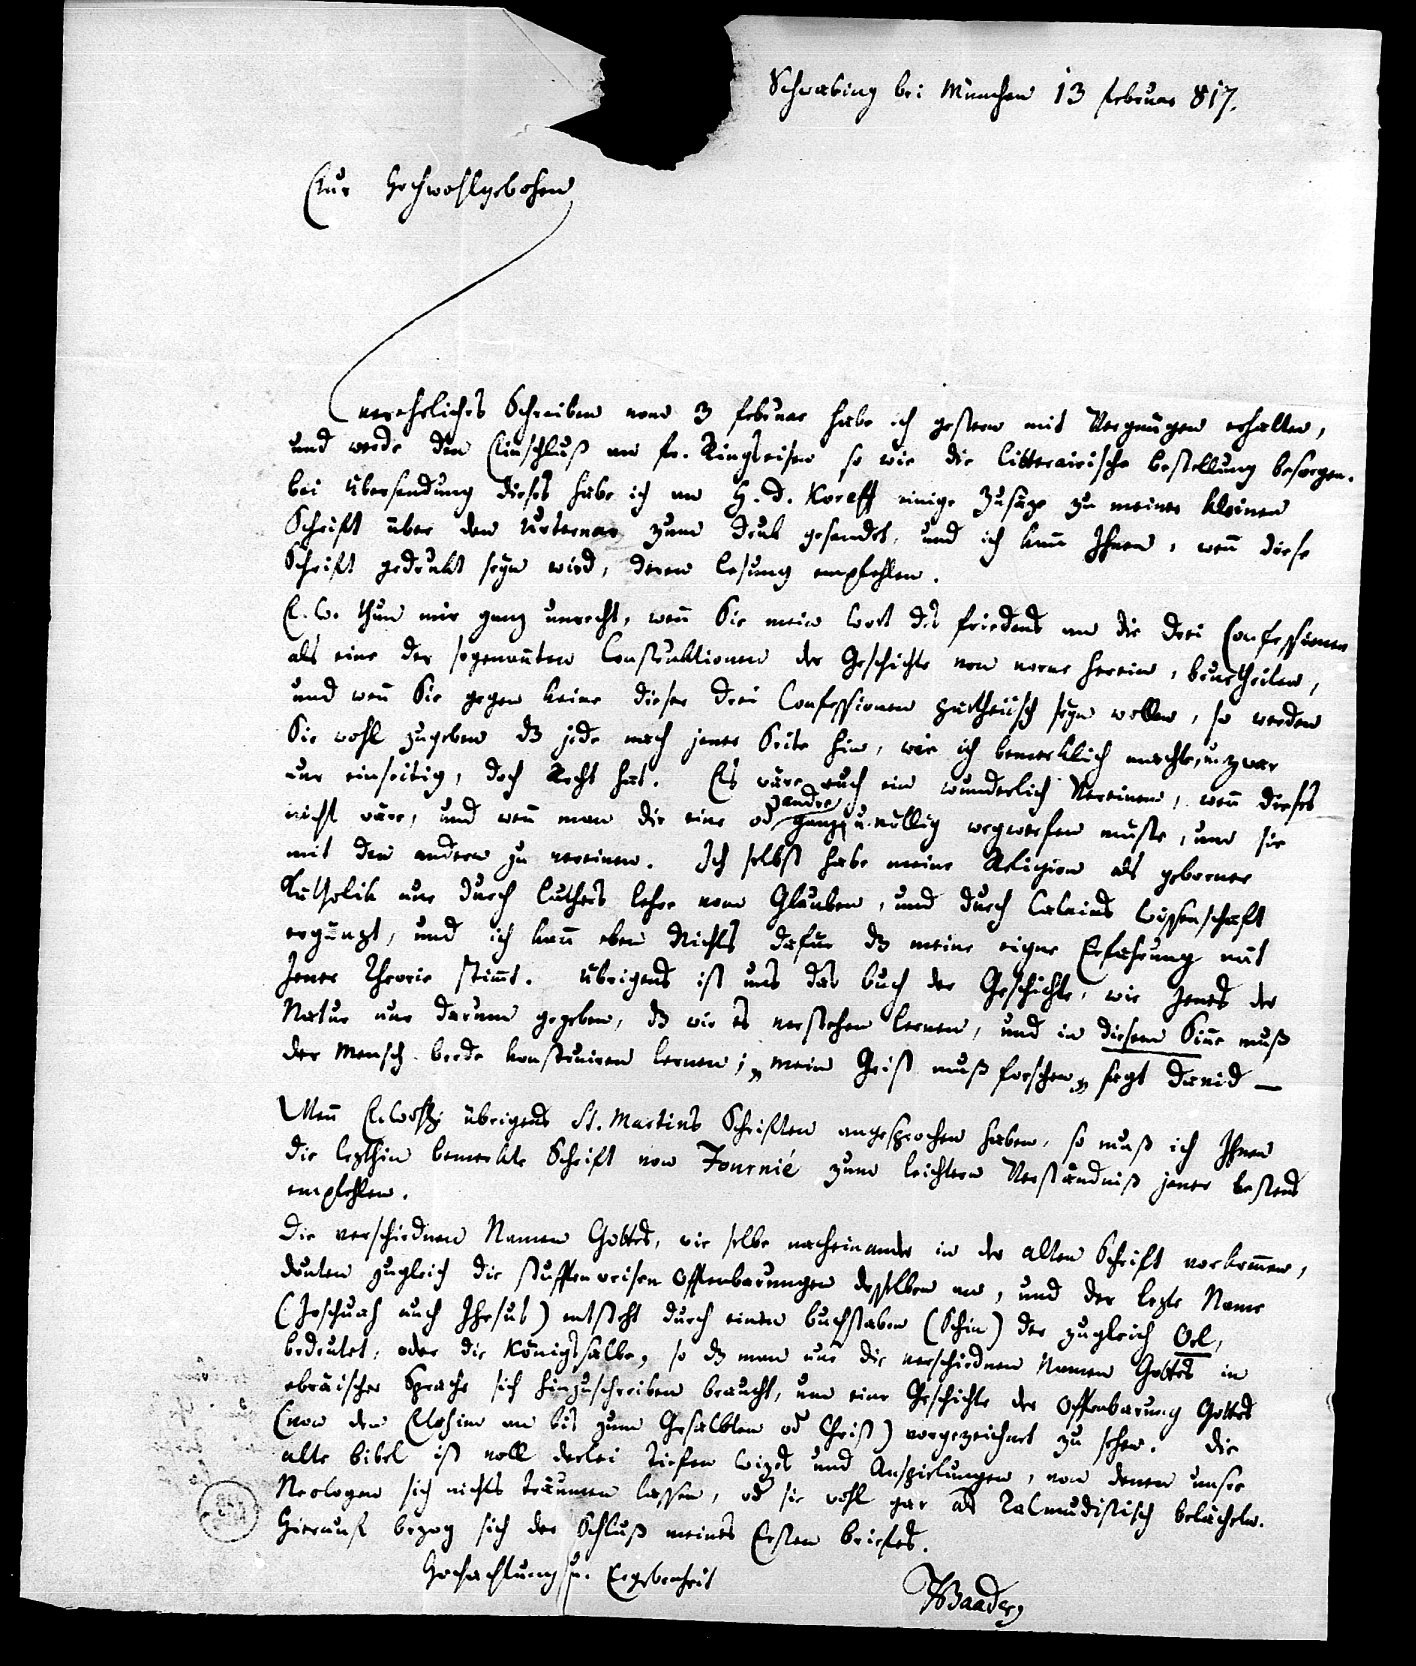 Schwabing bei München 13 Februar 817.
Eur Hochwohlgebohrn
verehrliches Schreiben vom 3 Februar habe ich gestern mit Vergnügen erhalten,
und werde den Einschluß an Hr. Ringseisen so wie die litterairische Bestellung besorgen.
bei Übersendung dieses habe ich an H. D. Koreff einige Zusäze zu meiner kleinen
Schrift über den Urternar zum Druk gesendet, und ich kann Ihnen, wenn diese
Schrift gedrukt seyn wird, deren Lesung empfehlen.
E. W. thun mir ganz unrecht, wenn Sie mein Wort des Friedens an die drei Confessionen
als eine der sogenannten Construktionen der Geschichte von vorne herein, beurtheilen,
und wenn Sie gegen keine dieser drei Confessionen partheiisch seyn wollen, so werden
Sie wohl zugeben dß jede nach jener Seite hin, wie ich bemerklich machte, u. zwar
nur einseitig, doch Recht hat. Es wäre auch ein wunderlich Vereinen, wenn dieses
nicht wäre, und wenn man die eine od andre ganz u. völlig wegwerfen müßte, um sie
mit den andern zu vereinen. Ich selbst habe meine Religion als geborner
Katholik nur durch Luthers Lehre vom Glauben, und durch Calvins Wissenschaft
ergänzt, und ich kann eben Nichts dafür dß meine eigne Erfahrung mit
Jener Theorie stimmt. Übrigens ist uns das Buch der Geschichte, wie Jenes der
Natur nur darum gegeben, dß wir es verstehen lernen, und in diesem Sinne muß
der Mensch beede konstruiren lernen; „mein Geist muß forschen„ sagt David —
Wenn E. Wohlg übrigens St. Martins Schriften angesprochen haben, so muß ich Ihnen
die lezthin bemerkte Schrift von Fournié zum leichtern Verständniß jener bestens
empfehlen.
Die verschiednen Namen Gottes, wie selbe nacheinander in der alten Schrift vorkommen,
deuten zugleich die stuffenweisen Offenbarungen desselben an, und der lezte Name
(Jeschuah auch Jhesus) entsteht durch einen Buchstaben (Schin) der zugleich Oel,
bedeutet, oder die Königssalbe, so dß man nur die verschiednen Namen Gottes in
ebräischer Sprache sich hinzuschreiben braucht, um eine Geschichte der Offenbarung Gottes
(von den Elohim an bis zum Gesalbten od Christ) vorgezeichnet zu sehen. Die
alte Bibel ist voll derlei tiefen Wizes und Anspielungen, von denen unsre
Neologen sich nichts träumen lassen, od sie wohl gar als Talmudistisch belächeln.
Hierauf bezog sich der Schluß meines Ersten Briefes.
Hochachtung u. Ergebenheit
FBaader